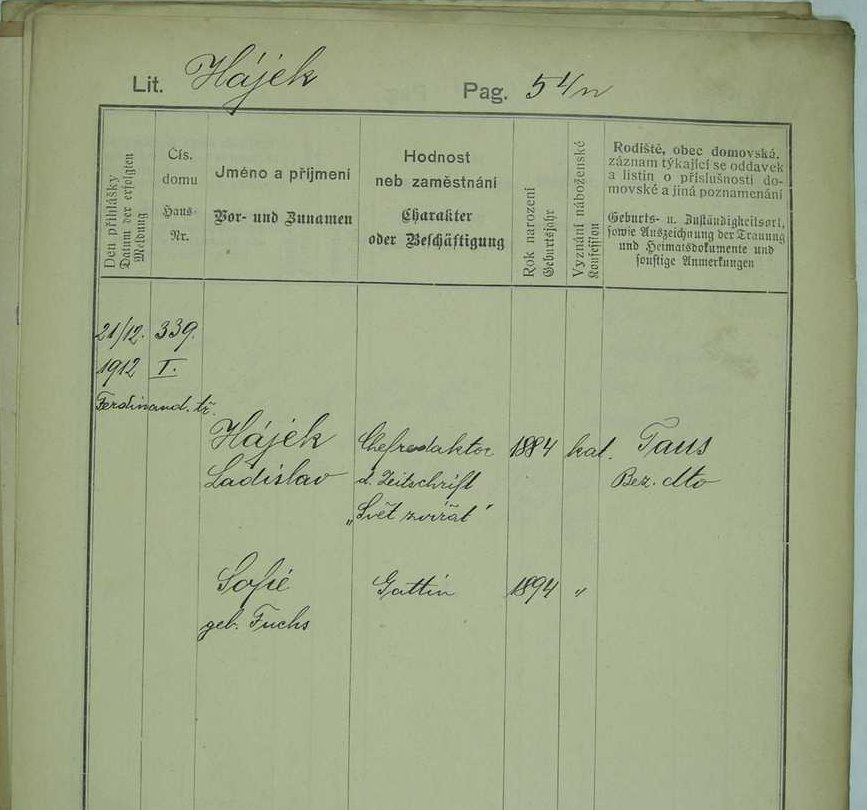 Lit. Hájek Pag. 54/n
Den přihlášky
Datum der erfolgten
Meldung
Čís.
domu
Haus-
Nr.
Jméno a přijmení
Vor- und Zunamen
Hodnost
neb zaměstnání
Charakter
oder Beschäftigung
Rok narození
Geburtsjahr
Vyznání náboženské
Konfession
Rodiště, obec domovská,
záznam týkající se oddavek
a listin o příslušnosti do-
movské a jiná poznamenání
Geburts- u. Zuständigkeitsort,
sowie Auszeichnung der Trauung
und Heimatsdokumente und
sonstige Anmerkungen
21/12. 339.
1912 I.
Ferdinand. tř.
Hájek Chefredaktor 1884 kat. Taus
Ladislav d. Zeitschrift Bez. dto
„Svět zvířat"
Sofie Gattin 1894 "
geb. Fuchs